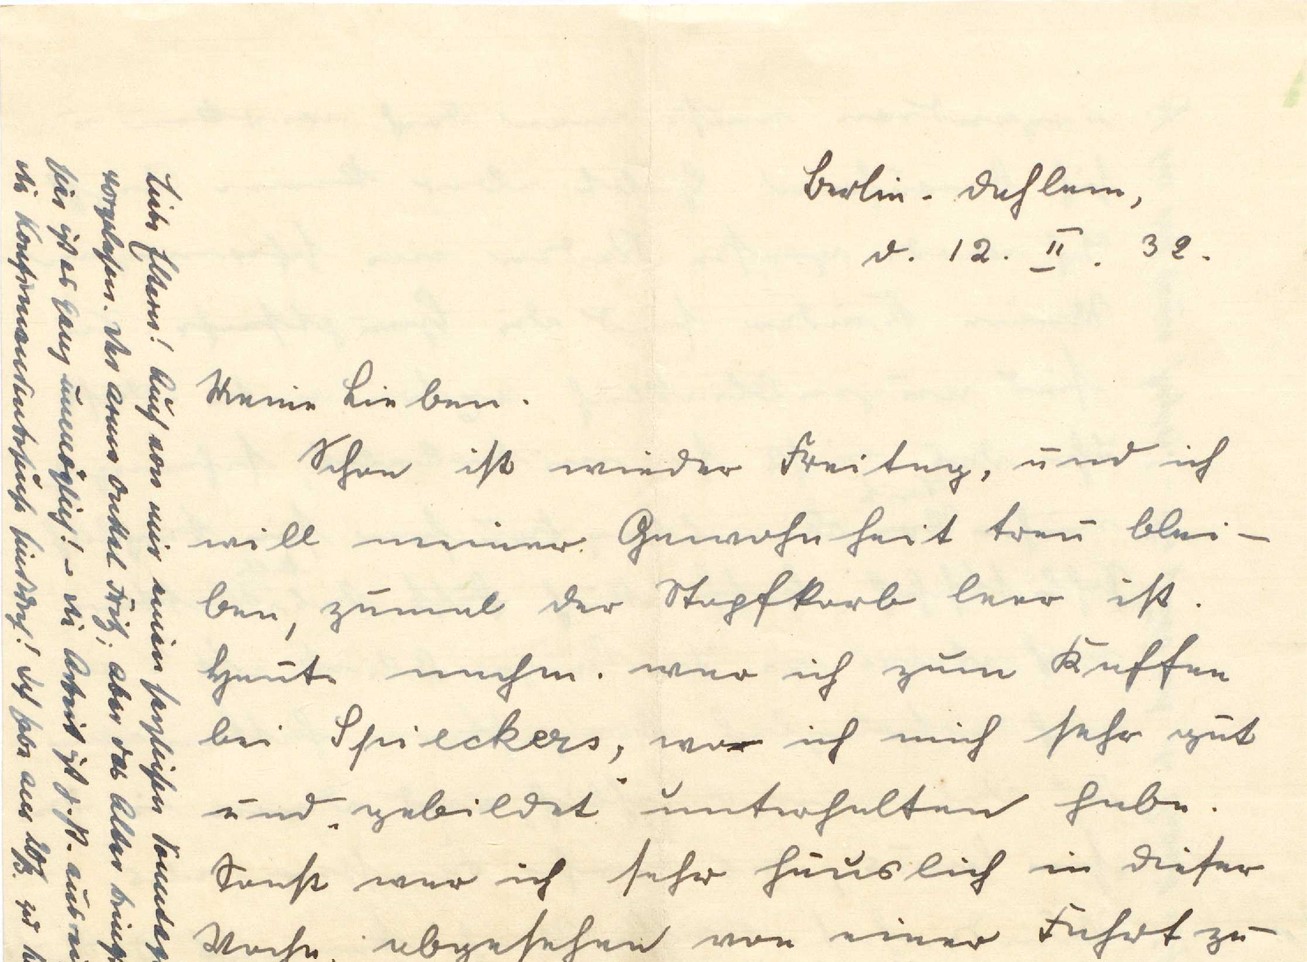 Berlin-Dahlem,
d. 12. II. 32.
Meine Lieben.
Schon ist wieder Freitag, und ich
will meiner Gewohnheit treu blei-
ben, zumal der Stopfkorb leer ist.
Heute nachm. war ich zum Kaffee
bei Spieckers, wo ich mich sehr gut
und „gebildet“ unterhalten habe.
Sonst war ich sehr häuslich in dieser
Woche, abgesehen von einer Fahrt zu
Liebe Eltern! Auch von mir einen herzlichen Sonntags
vorgelesen. Der arme Onkel Fritz; aber das Alter bringt
hier ist es ganz unmöglich! – die Arbeit ist z. Zt.
die Konfirmandenbesuche hindurch! Ich habe aus